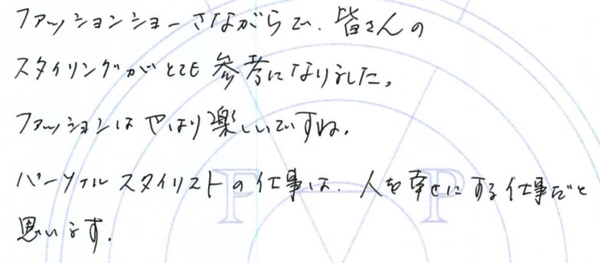 ファッションショーさながらで、皆さんの
スタイリングがとても参考になりました。
ファッションはやはり楽しいですね。
パーソナルスタイリストの仕事は、人を幸せにする仕事だと
思います。
F P